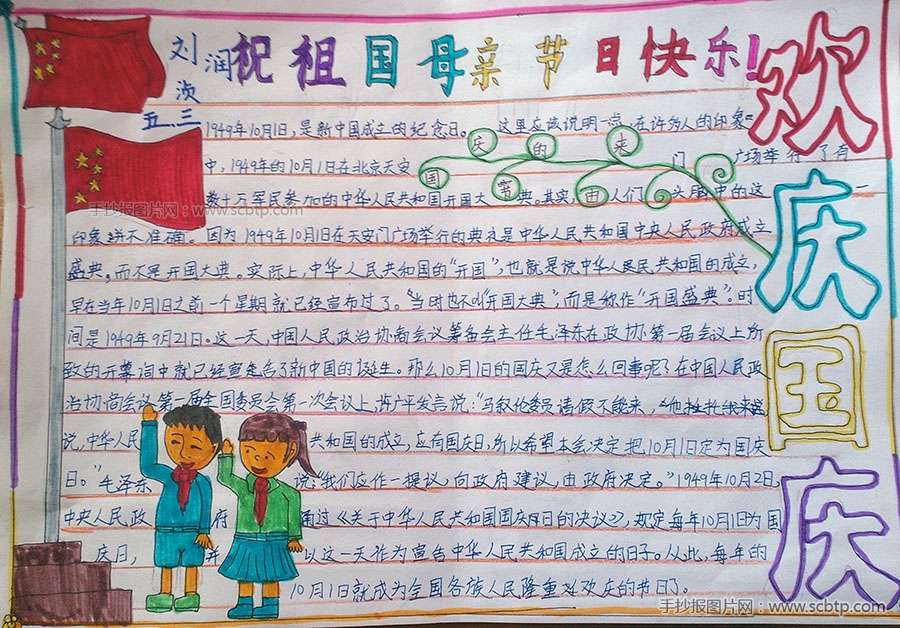 祝祖国母亲节日快乐!
刘润
浈
五三
欢庆国庆
国庆节的由来
1949年10月1日,是新中国成立的纪念日。 这里应该说明一点,在许多人的印象
中,1949年的10月1日在北京天安 门 广场举行了有
数十万军民参加的中华人民共和国开国大典。其实,人们 头脑中的这一
印象并不准确。因为1949年10月1日在天安门广场举行的典礼是中华人民共和国中央人民政府成立
盛典,而不是开国大典。实际上,中华人民共和国的“开国”,也就是说中华人民共和国的成立,
早在当年10月1日之前一个星期就已经宣布过了。“当时也不叫“开国大典”,而是称作“开国盛典”。时
间是1949年9月21日。这一天,中国人民政治协商会议筹备会主任毛泽东在政协第一届会议上所
致的开幕词中就已经宣告了新中国的诞生。那么10月1日的国庆又是怎么回事呢?在中国人民政
治协商会议第一届全国委员会第一次会议上,许广平发言说:“马叙伦委员请假不能来,他托我来
说,中华人民 共和国的成立,应有国庆日,所以希望本会决定把10月1日定为国庆
日。”毛泽东 说:“我们应作一提议,向政府建议,由政府决定。”1949年10月2日,
中央人民政 府 通过《关于中华人民共和国国庆日的决议》,规定每年10月1日为国
庆日, 并 以这一天作为宣告中华人民共和国成立的日子。从此,每年的
10月1日就成为全国各族人民隆重欢庆的节日了。
手抄报图片网:www.scbtp.com
手抄报图片网:www.scbtp.com